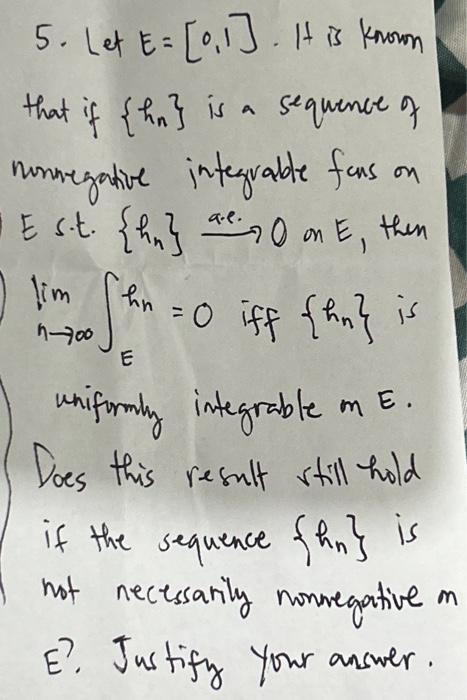 5. Let E = [0,1]. It is known
that if {hn} is a sequence of
nonnegative integrable fcns on
E s.t. {hn} a.e.→ 0 on E, then
lim n→∞ ∫E hn = 0 iff {hn} is
uniformly integrable on E.
Does this result still hold
if the sequence {hn} is
not necessarily nonnegative on
E? Justify your answer.